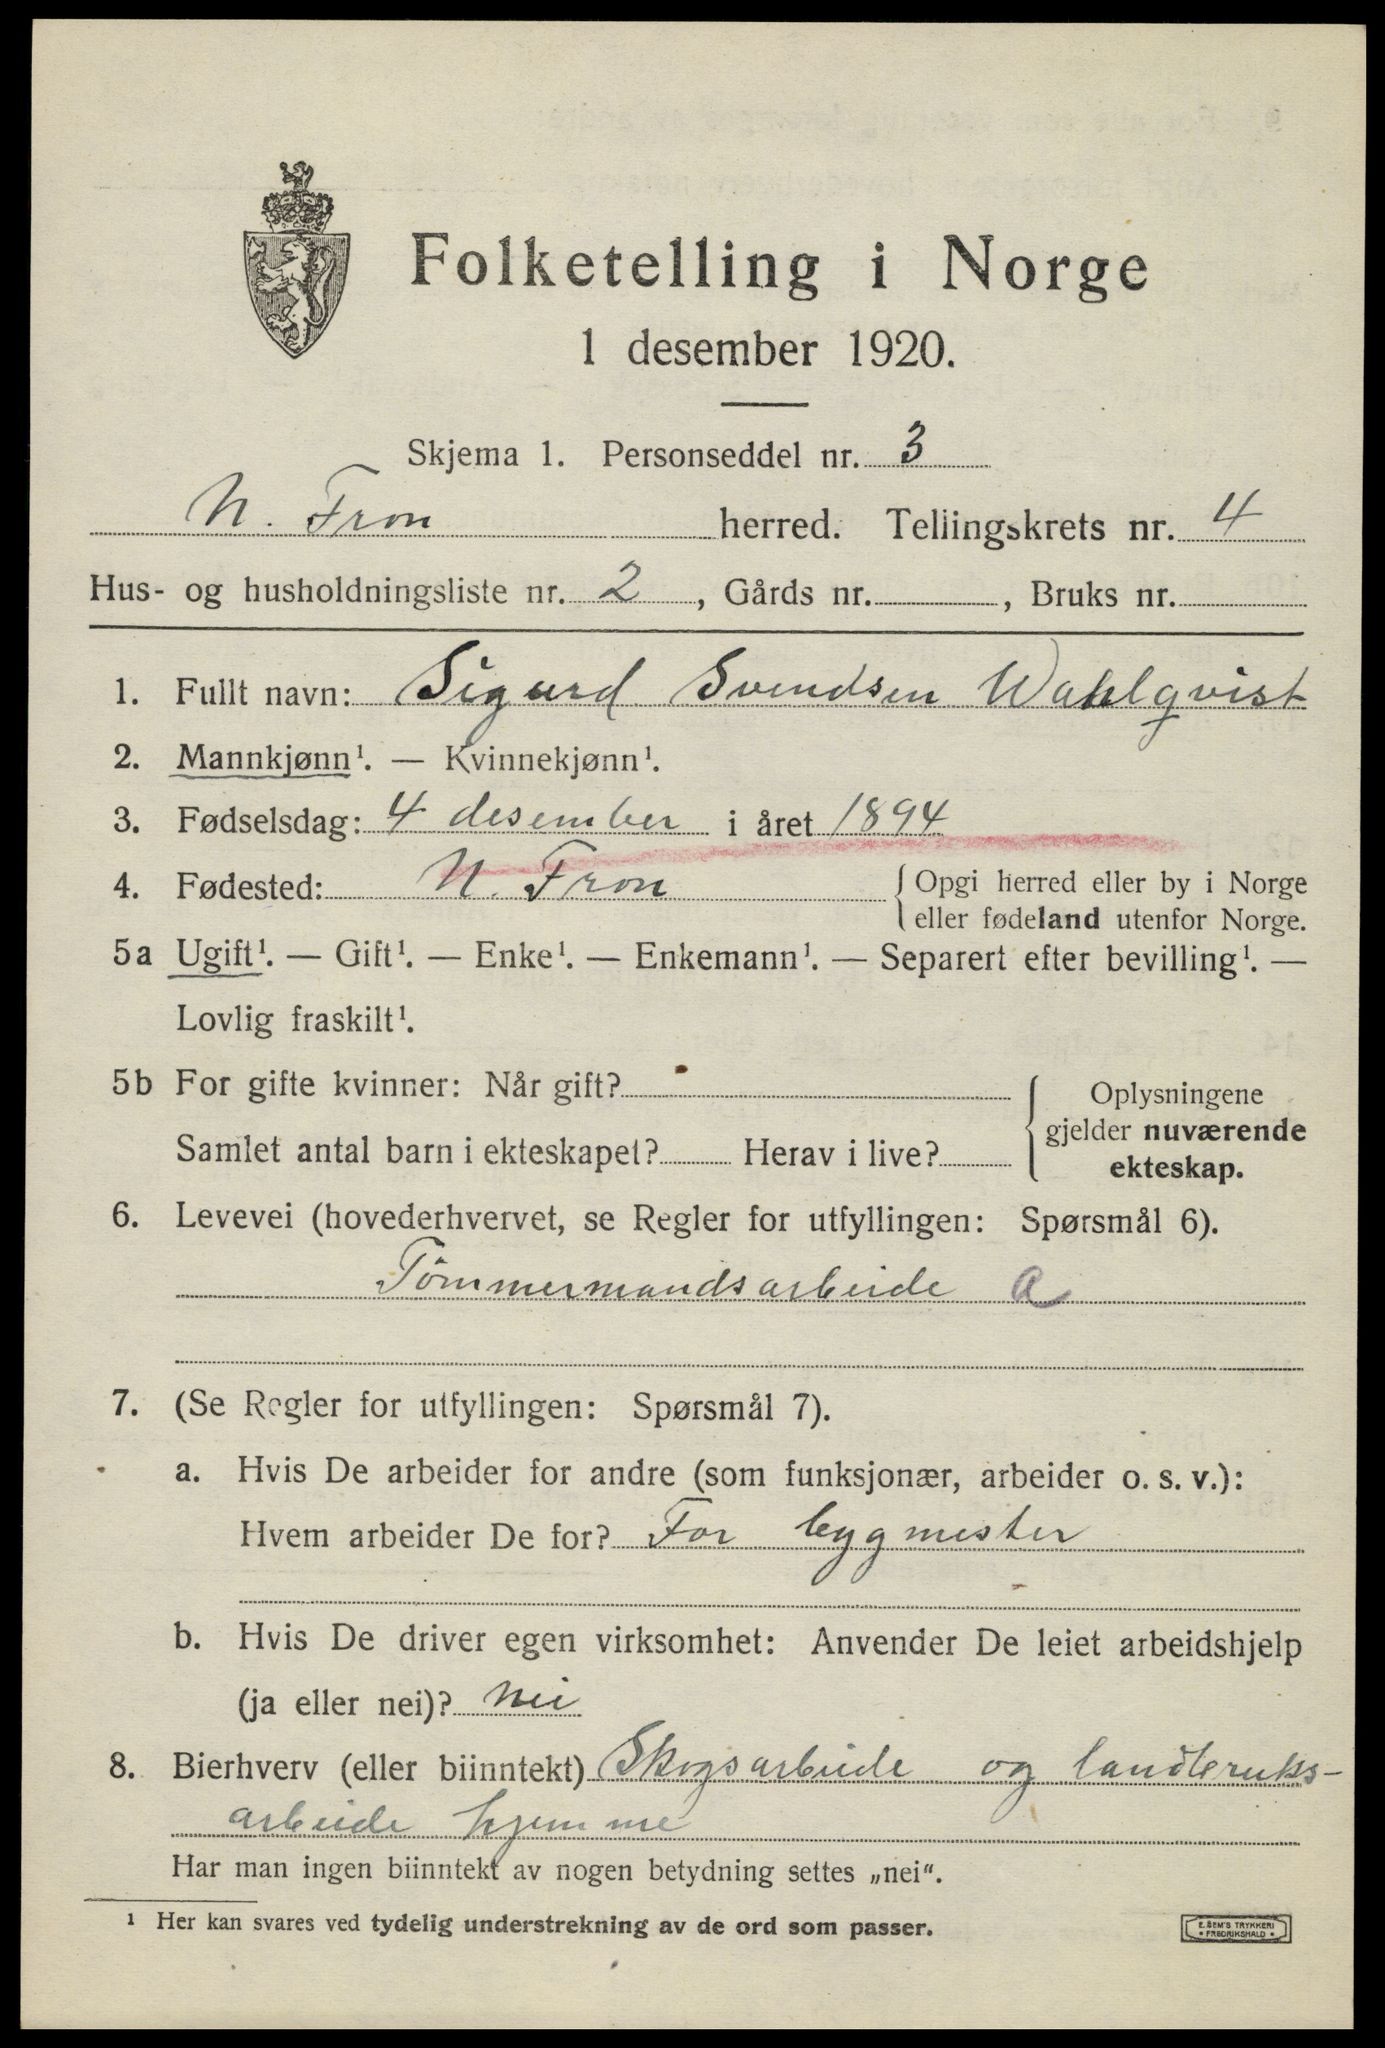 Folketelling i Norge
1 desember 1920.
Skjema 1. Personseddel nr. 3
N. Fron herred. Tellingskrets nr. 4
Hus- og husholdningsliste nr. 2, Gårds nr. , Bruks nr.
1. Fullt navn: Sigurd Svendsen Wahlqvist
2. Mannkjønn¹. — Kvinnekjønn¹.
3. Fødselsdag: 4 desember i året 1894
4. Fødested: N. Fron { Opgi herred eller by i Norge
eller fødeland utenfor Norge.
5a Ugift¹. — Gift¹. — Enke¹. — Enkemann¹. — Separert efter bevilling¹. —
Lovlig fraskilt¹.
5b For gifte kvinner: Når gift?
Samlet antal barn i ekteskapet? Herav i live?
Oplysningene
gjelder nuværende
ekteskap.
6. Levevei (hovederhvervet, se Regler for utfyllingen: Spørsmål 6).
Tömmermandsarbeide A
7. (Se Regler for utfyllingen: Spørsmål 7).
a. Hvis De arbeider for andre (som funksjonær, arbeider o. s. v.):
Hvem arbeider De for? For bygmester
b. Hvis De driver egen virksomhet: Anvender De leiet arbeidshjelp
(ja eller nei)? nei
8. Bierhverv (eller biinntekt) Skogsarbeide og landbruks-
arbeide hjemme
Har man ingen biinntekt av nogen betydning settes „nei“.
¹ Her kan svares ved tydelig understrekning av de ord som passer.
E. SEM'S TRYKKERI
* FREDRIKSHALD *